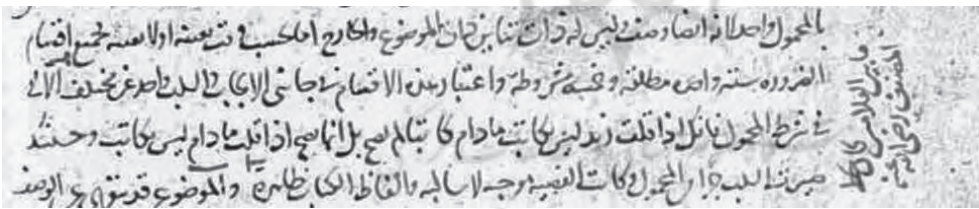 بالمحمول واحد لانه ايضا وصف وليس له ذات تباين ذات الموضوع والخارج اما بحسب وقت بعينه او لا بعينه فجميع اقسام
الضرورة ستة واحدة مطلقة وخمسة مشروطة واعتبار هذه الاقسام في جانبي الايجاب والسلب واحد غير مختلف الا
في شرط المحمول فانك اذا قلت زيد ليس بكاتب ما دام كاتبا لم يصح بل انما يصح اذا قلت ما دام ليس بكاتب وحينئذ
صيرت السلب جزءا من المحمول وكانت القضية موجبة لا سالبة والفاظ الكتاب ظاهرة والموضوع قد يتعرى عن الوصف